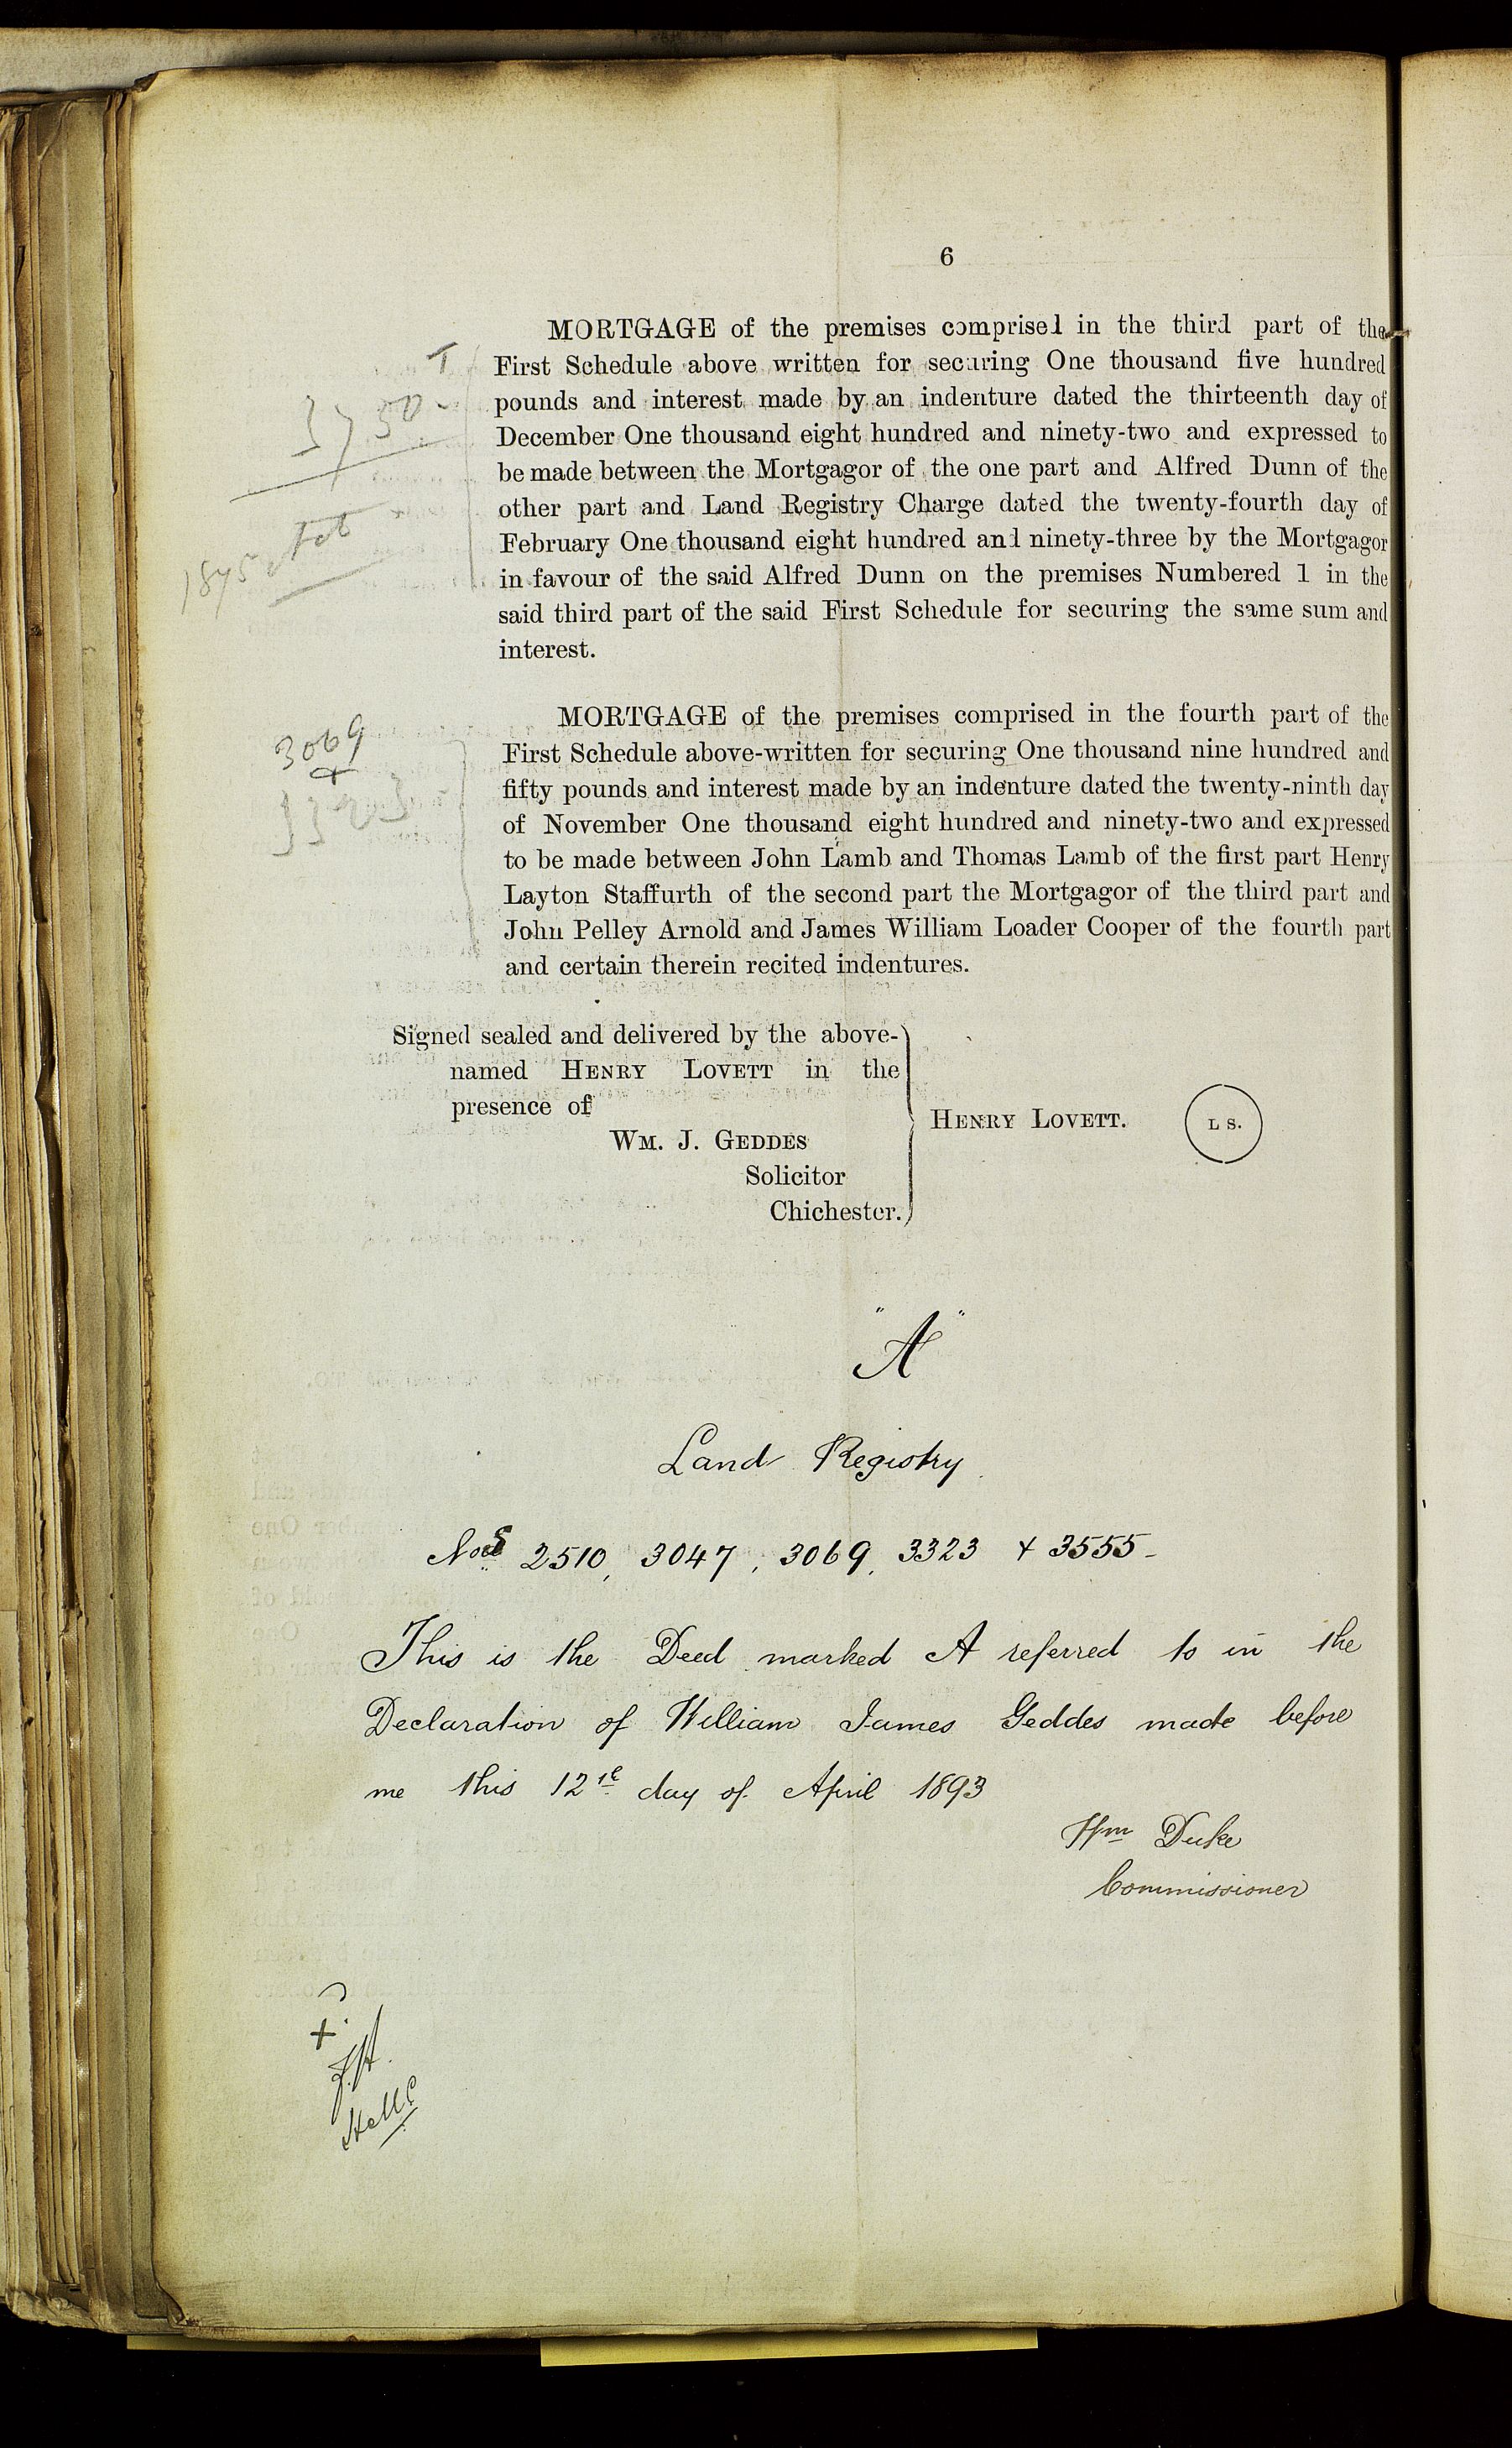 6
MORTGAGE of the premises comprisel in the third part of the
First Schedule above written for securing One thousand five hundred
pounds and interest made by an indenture dated the thirteenth day of
December One thousand eight hundred and ninety-two and expressed to
be made between the Mortgagor of the one part and Alfred Dunn of the
other part and Land Registry Charge dated the twenty-fourth day of
February One thousand eight hundred and ninety-three by the Mortgagor
in favour of the said Alfred Dunn on the premises Numbered 1 in the
said third part of the said First Schedule for securing the same sum and
interest.
3069
+
MORTGAGE of the premises comprised in the fourth part of the
First Schedule above-written for securing One thousand nine hundred and
fifty pounds and interest made by an indenture dated the twenty-ninth day
of November One thousand eight hundred and ninety-two and expressed
to be made between John Lamb and Thomas Lamb of the first part Henry
Layton Staffurth of the second part the Mortgagor of the third part and
John Pelley Arnold and James William Loader Cooper of the fourth part
and certain therein recited indentures.
Signed sealed and delivered by the above-
named HENRY LOVETT in the
presence of
WM. J. GEDDES
Solicitor
Chichester.
HENRY LOVETT.
L S.
"A"
Land Registry
Nos 2510, 3047, 3069, 3323 + 3555-
This is the Deed marked A referred to in the
Declaration of William James Geddes made before
me this 12th day of April 1893
Wm Duke
Commissioner